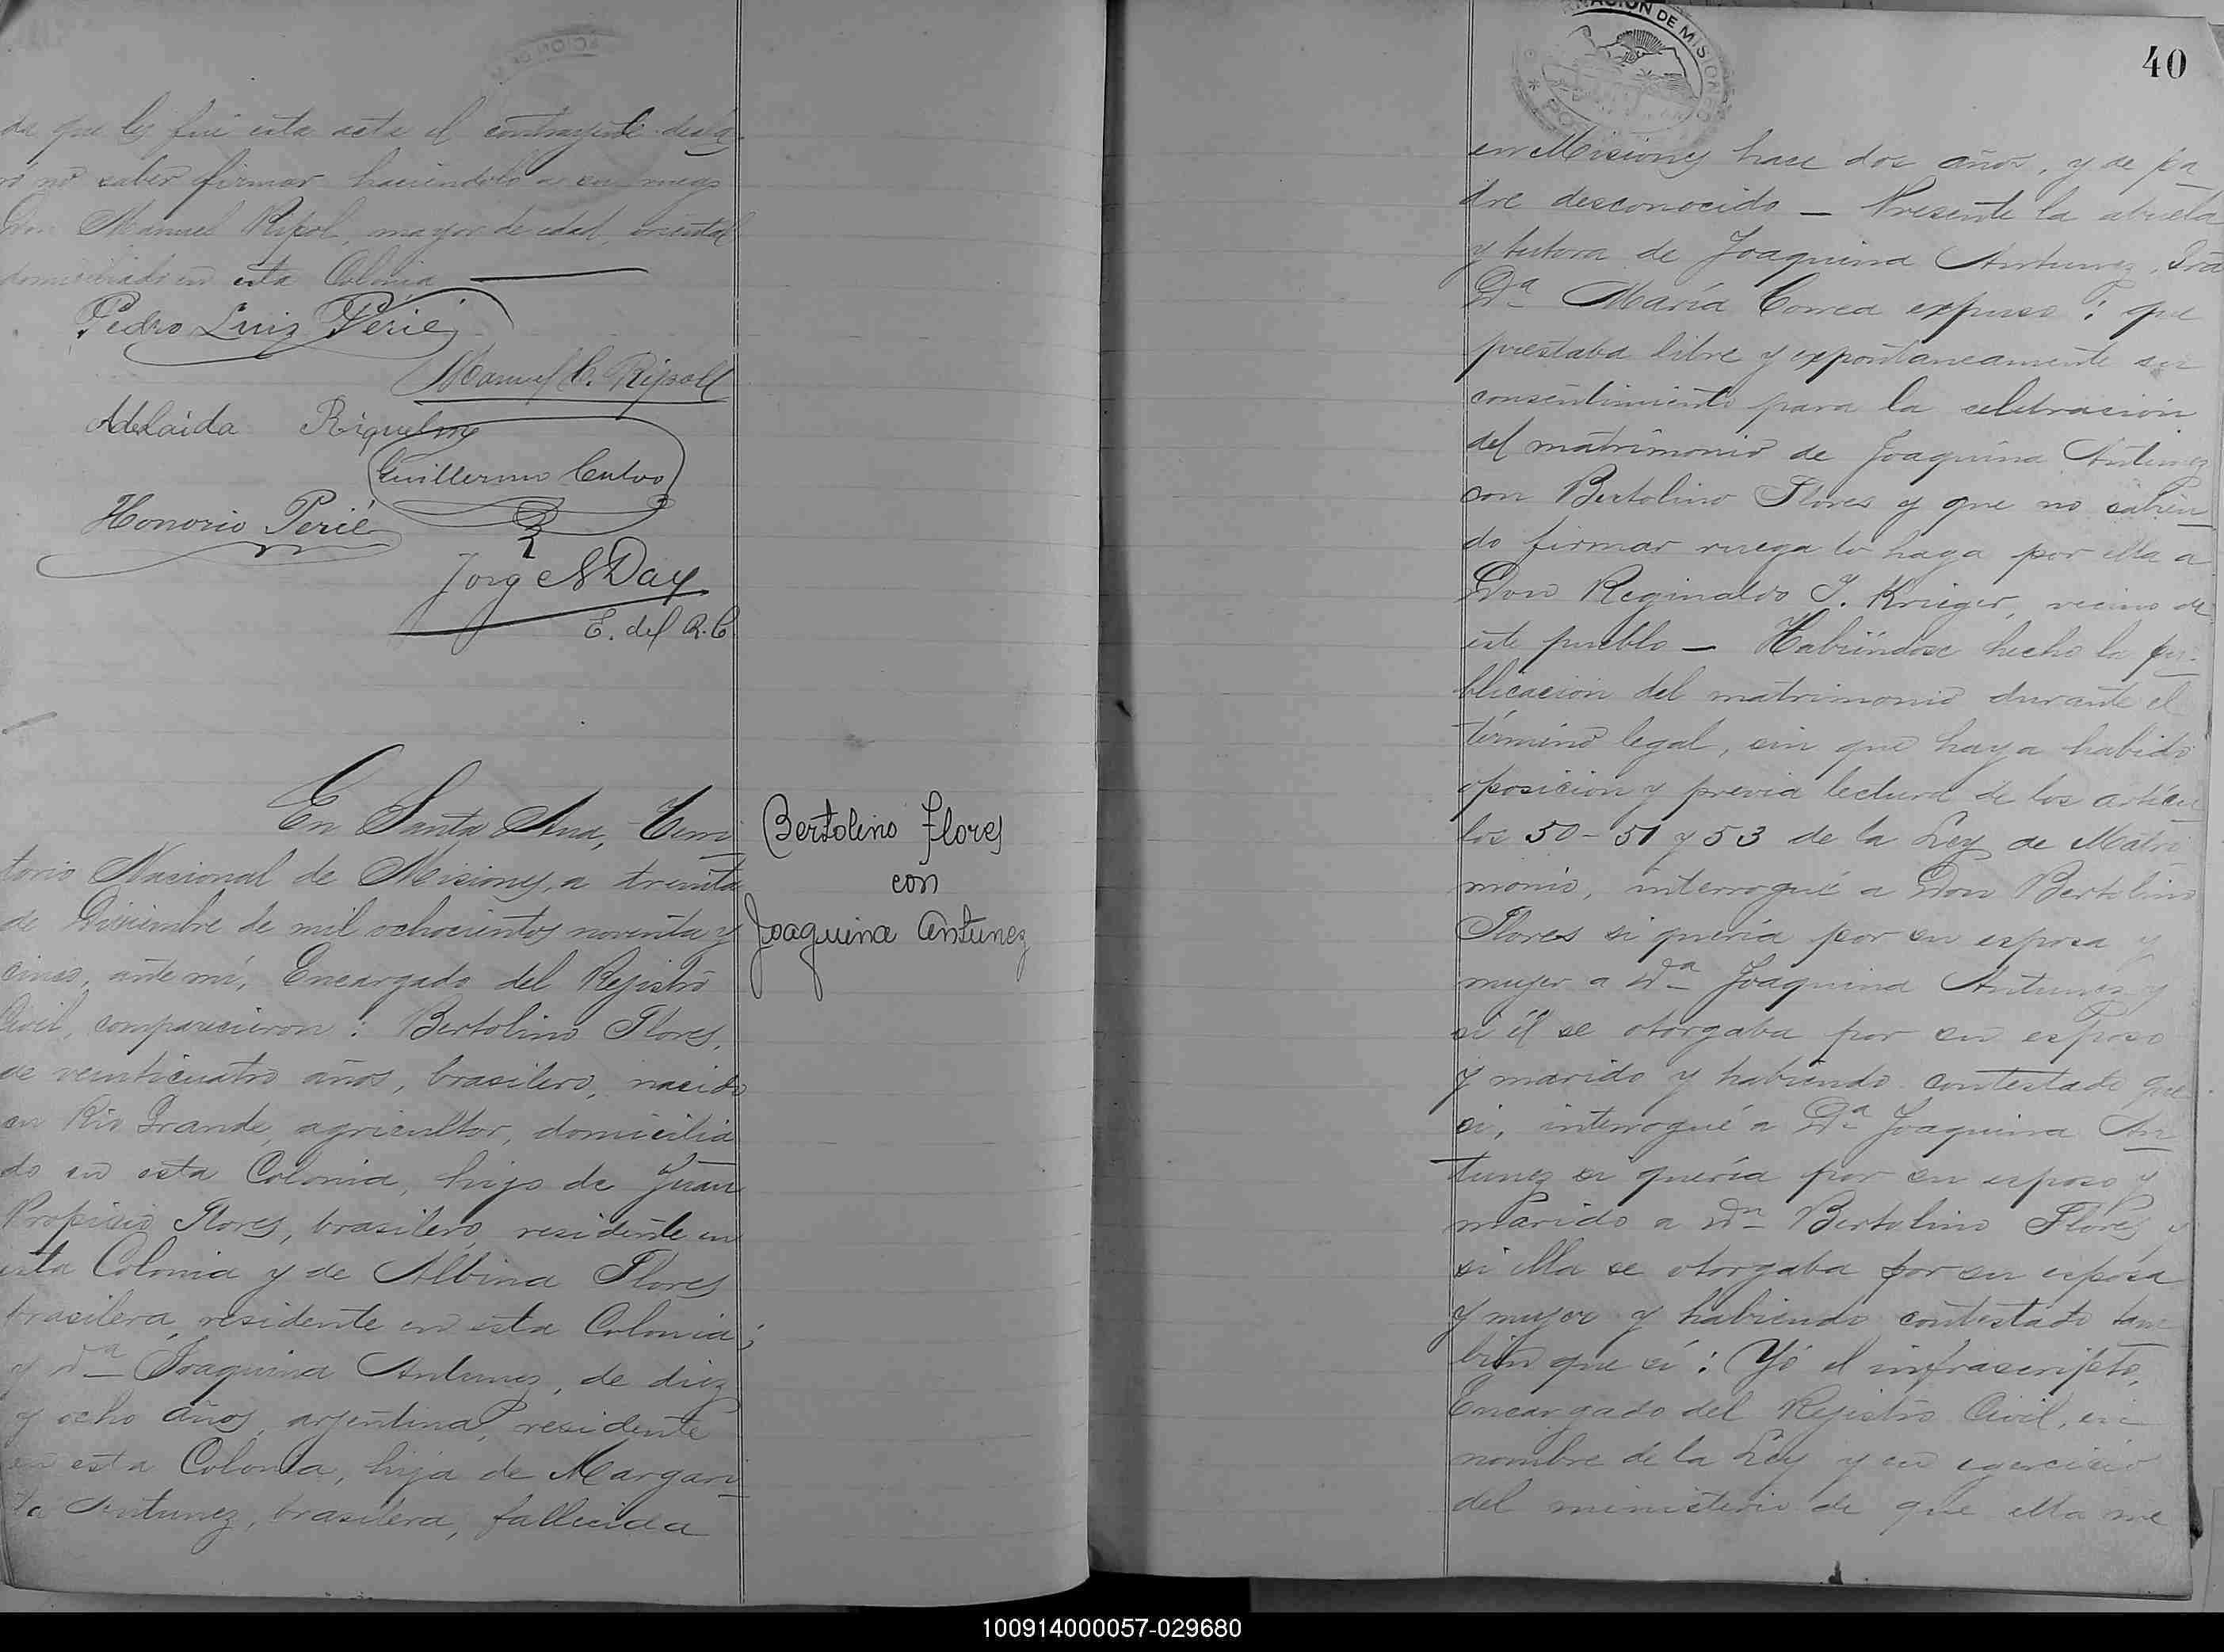 da que les fué esta acta el contrayente decla-
ró nó saber firmar haciendolo a su ruego
Don Manuel Ripol, mayor de edad, oriental
domiciliado en esta Colonia
Pedro Luis Perié
Manuel C. Ripoll
Adelaida Riquelme
Guillermo Calvo
Honorio Perié
Jorg N Day
E. del R. C.
En Santa Ana, Terri
torio Nacional de Misiones, a treinta
de Diciembre de mil ochocientos noventa y
cinco, ante mí, Encargado del Rejistro
Civil, comparecieron: Bertolino Flores,
de veinticuatro años, brasilero, nacido
en Rio Grande, agricultor, domicilia
do en esta Colonia, hijo de Juan
Propicio Flores, brasilero, residente en
esta Colonia y de Albina Flores
brasilera, residente en esta Colonia;
y Dª Joaquina Antunez, de diez
y ocho años, argentina, residente
en esta Colonia, hija de Margari
ta Antunez, brasilera, fallecida
Bertolino Flores
con
Joaquina Antunez
40
NACION DE MISIONES
en Misiones hace dos años, y de pa
dre desconocido — Presente la abuela
y tutora de Joaquina Antunez, Sra
Dª María Correa expuso: que
prestaba libre y expontaneamente su
consentimiento para la celebracion
del matrimonio de Joaquina Antunez
con Bertolino Flores y que no sabien
do firmar ruega lo haga por ella a
Don Reginaldo J. Krieger, vecino de
este pueblo — Habiéndose hecho la pu-
blicacion del matrimonio durante el
término legal, sin que haya habido
oposicion y previa lectura de los articu
los 50-51 y 53 de la Ley de Matri
monio, interrogué a Don Bertolino
Flores si queria por su esposa y
mujer a Dª Joaquina Antunez y
si él se otorgaba por su esposo
y marido y habiendo contestado que
si, interrogué a Dª Joaquina An
tunez si quería por su esposo y
marido a Dn Bertolino Flores y
si ella se otorgaba por su esposa
y mujer y habiendo contestado tam
bien que sí: Yó el infrascripto,
Encargado del Rejistro Civil, en
nombre de la Ley y en egercicio
del ministerio de que ella me
100914000057-029680